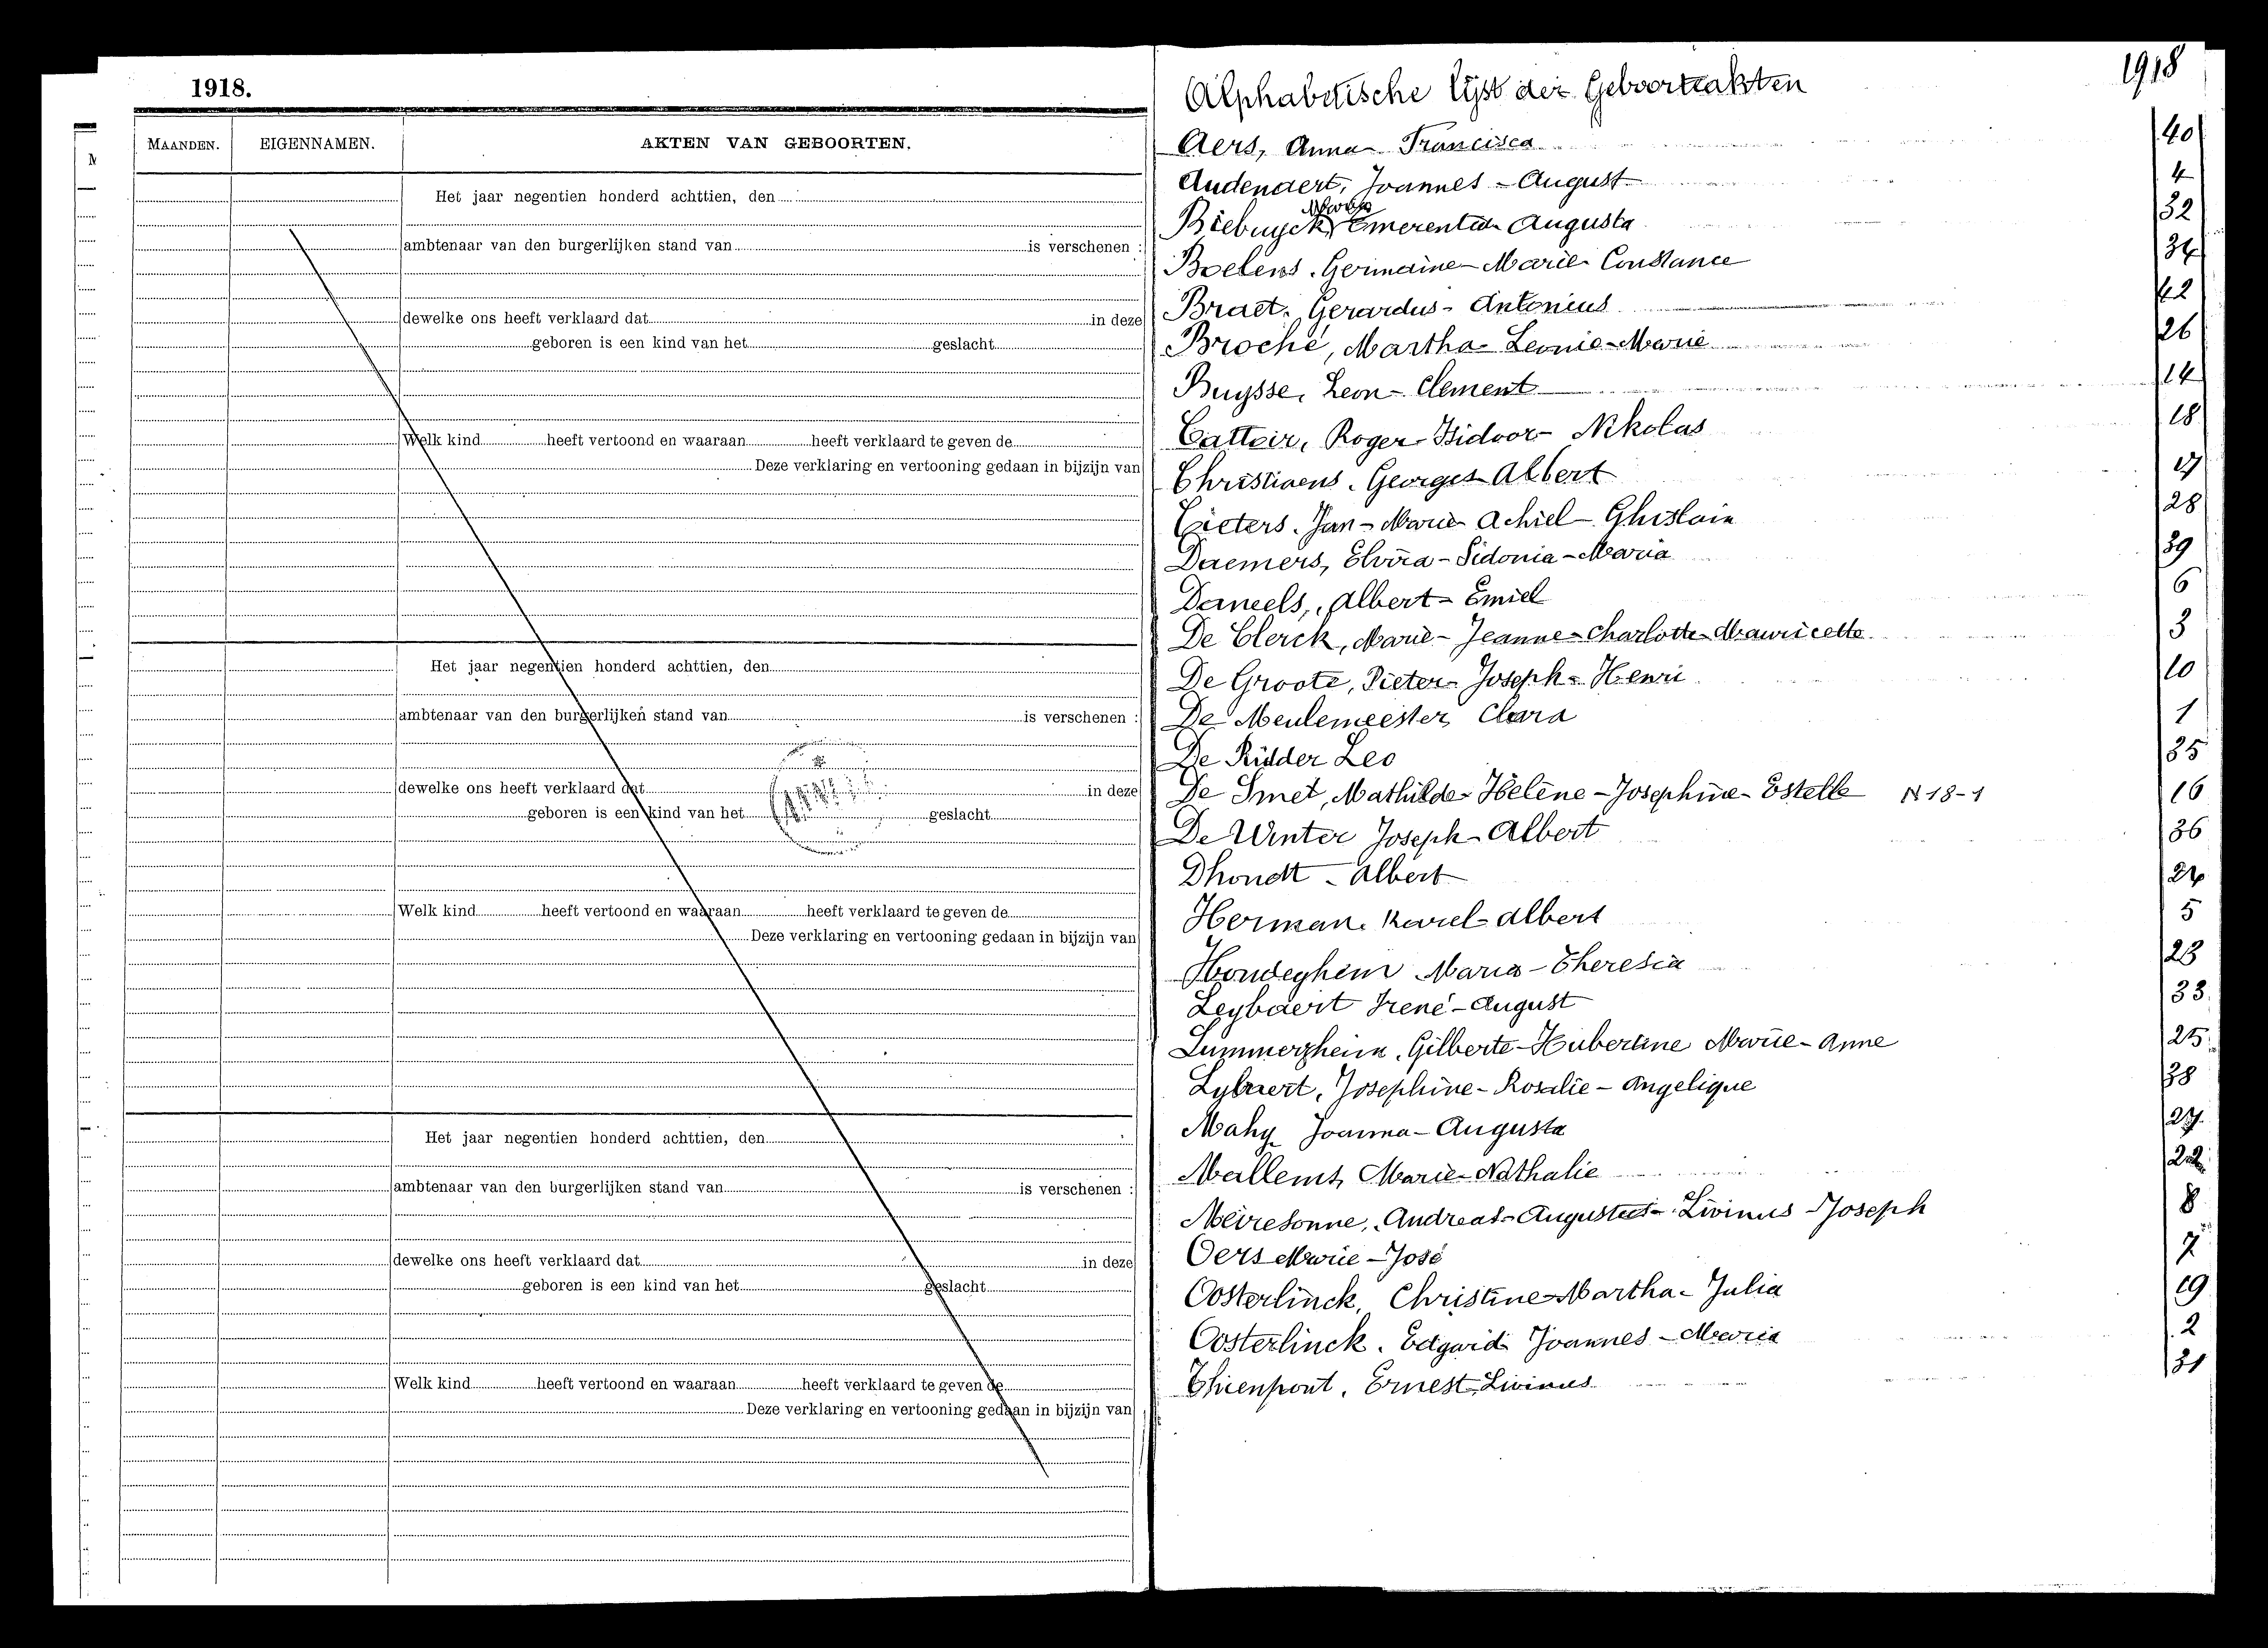 1918.
MAANDEN. EIGENNAMEN. AKTEN VAN GEBOORTEN.
Het jaar negentien honderd achttien, den
ambtenaar van den burgerlijken stand van is verschenen :
dewelke ons heeft verklaard dat in deze
geboren is een kind van het geslacht
Welk kind heeft vertoond en waaraan heeft verklaard te geven de
Deze verklaring en vertooning gedaan in bijzijn van
Het jaar negentien honderd achttien, den
ambtenaar van den burgerlijken stand van is verschenen :
dewelke ons heeft verklaard dat in deze
geboren is een kind van het geslacht
Welk kind heeft vertoond en waaraan heeft verklaard te geven de
Deze verklaring en vertooning gedaan in bijzijn van
Het jaar negentien honderd achttien, den
ambtenaar van den burgerlijken stand van is verschenen :
dewelke ons heeft verklaard dat in deze
geboren is een kind van het geslacht
Welk kind heeft vertoond en waaraan heeft verklaard te geven de
Deze verklaring en vertooning gedaan in bijzijn van
1918
Alphabetische lijst der Geboorteakten
Aers, Anna Francisca 40
Audenaert, Joannes - August 4
Maria
Biebuyck Emerentia Augusta 32
Boelens. Germaine - Marie Constance 34
Braet. Gerardus - Antonius 42
Broché, Martha - Leonie - Marie 26
Buysse, Leon - Clement 14
Cattoir, Roger - Isidoor - Nikolas 18
Christiaens. Georges Albert 17
Cieters. Jan - Marie Achiel - Ghislain 28
Daemers, Elvira - Sidonia - Maria 39
Daneels, Albert - Emiel 6
De Clerck, Marie - Jeanne - Charlotte - Mauricette 3
De Groote, Pieter - Joseph - Henri 10
De Meulemeester, Clara 1
De Ridder Leo 35
De Smet, Mathilde - Helène - Josephine - Estelle N 18-1 16
De Winter Joseph - Albert 36
Dhondt - Albert 24
Herman. Karel - Albert 5
Hondeghem Maria - Theresia 23
Leybaert Irené - August 33
Lummerzheim. Gilberte - Hubertine Marie - Anne 25
Lybaert, Josephine - Rosalie - Angelique 38
Mahy Joanna - Augusta 27
Mallems, Marie - Nathalie 22
Meiresonne, Andreas - Augustus - Livinus - Joseph 8
Oers Marie - José 7
Oosterlinck, Christine - Martha - Julia 19
Oosterlinck. Edgard Joannes - Maria 2
Thienpont. Ernest Livinus 31